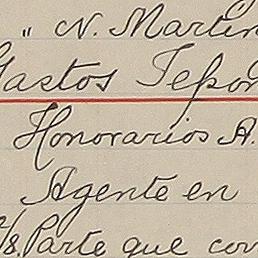 " N. Martin
Gastos Tepor
Honorarios A.
Agente en
/8. Parte que cor